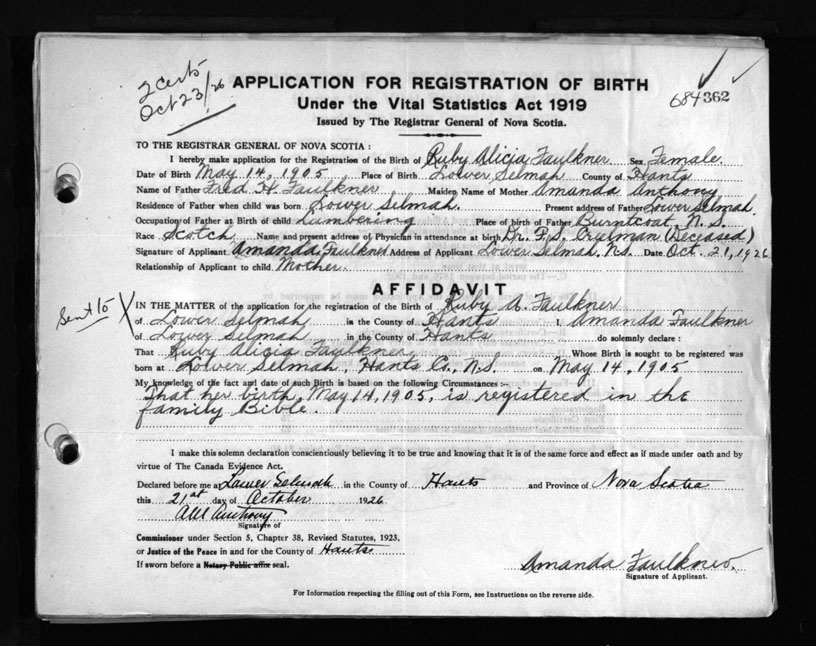 2 Certs
Oct 23/26
APPLICATION FOR REGISTRATION OF BIRTH
684362
Under the Vital Statistics Act 1919
Issued by The Registrar General of Nova Scotia.
TO THE REGISTRAR GENERAL OF NOVA SCOTIA :
I hereby make application for the Registration of the Birth of Ruby Alicia Faulkner Sex Female
Date of Birth May 14, 1905 Place of Birth Lower Selmah County of Hants
Name of Father Fred H. Faulkner Maiden Name of Mother Amanda Anthony
Residence of Father when child was born Lower Selmah. Present address of Father Lower Selmah
Occupation of Father at Birth of child Lumbering Place of birth of Father Burntcoat, N. S.
Race Scotch Name and present address of Physician in attendance at birth Dr. F. S. (Deceased)
Signature of Applicant Amanda Faulkner Address of Applicant Lower Selmah, N.S. Date Oct. 21, 1926
Relationship of Applicant to child Mother.
AFFIDAVIT
Sent 15 X
IN THE MATTER of the application for the registration of the Birth of Ruby A. Faulkner
of Lower Selmah in the County of Hants I, Amanda Faulkner
of Lower Selmah in the County of Hants do solemnly declare :
That Ruby Alicia Faulkner Whose Birth is sought to be registered was
born at Lower Selmah, Hants Co., N.S. on May 14, 1905
My knowledge of the fact and date of such Birth is based on the following Circumstances :-
That her birth, May 14, 1905, is registered in the
family Bible.
I make this solemn declaration conscientiously believing it to be true and knowing that it is of the same force and effect as if made under oath and by
virtue of The Canada Evidence Act.
Declared before me at Lower Selmah in the County of Hants and Province of Nova Scotia
this 21st day of October 1926
Anthony
Signature of
Commissioner under Section 5, Chapter 38, Revised Statutes, 1923.
or Justice of the Peace in and for the County of Hants
If sworn before a Notary Public affix seal.
Amanda Faulkner.
Signature of Applicant.
For Information respecting the filling out of this Form, see Instructions on the reverse side.